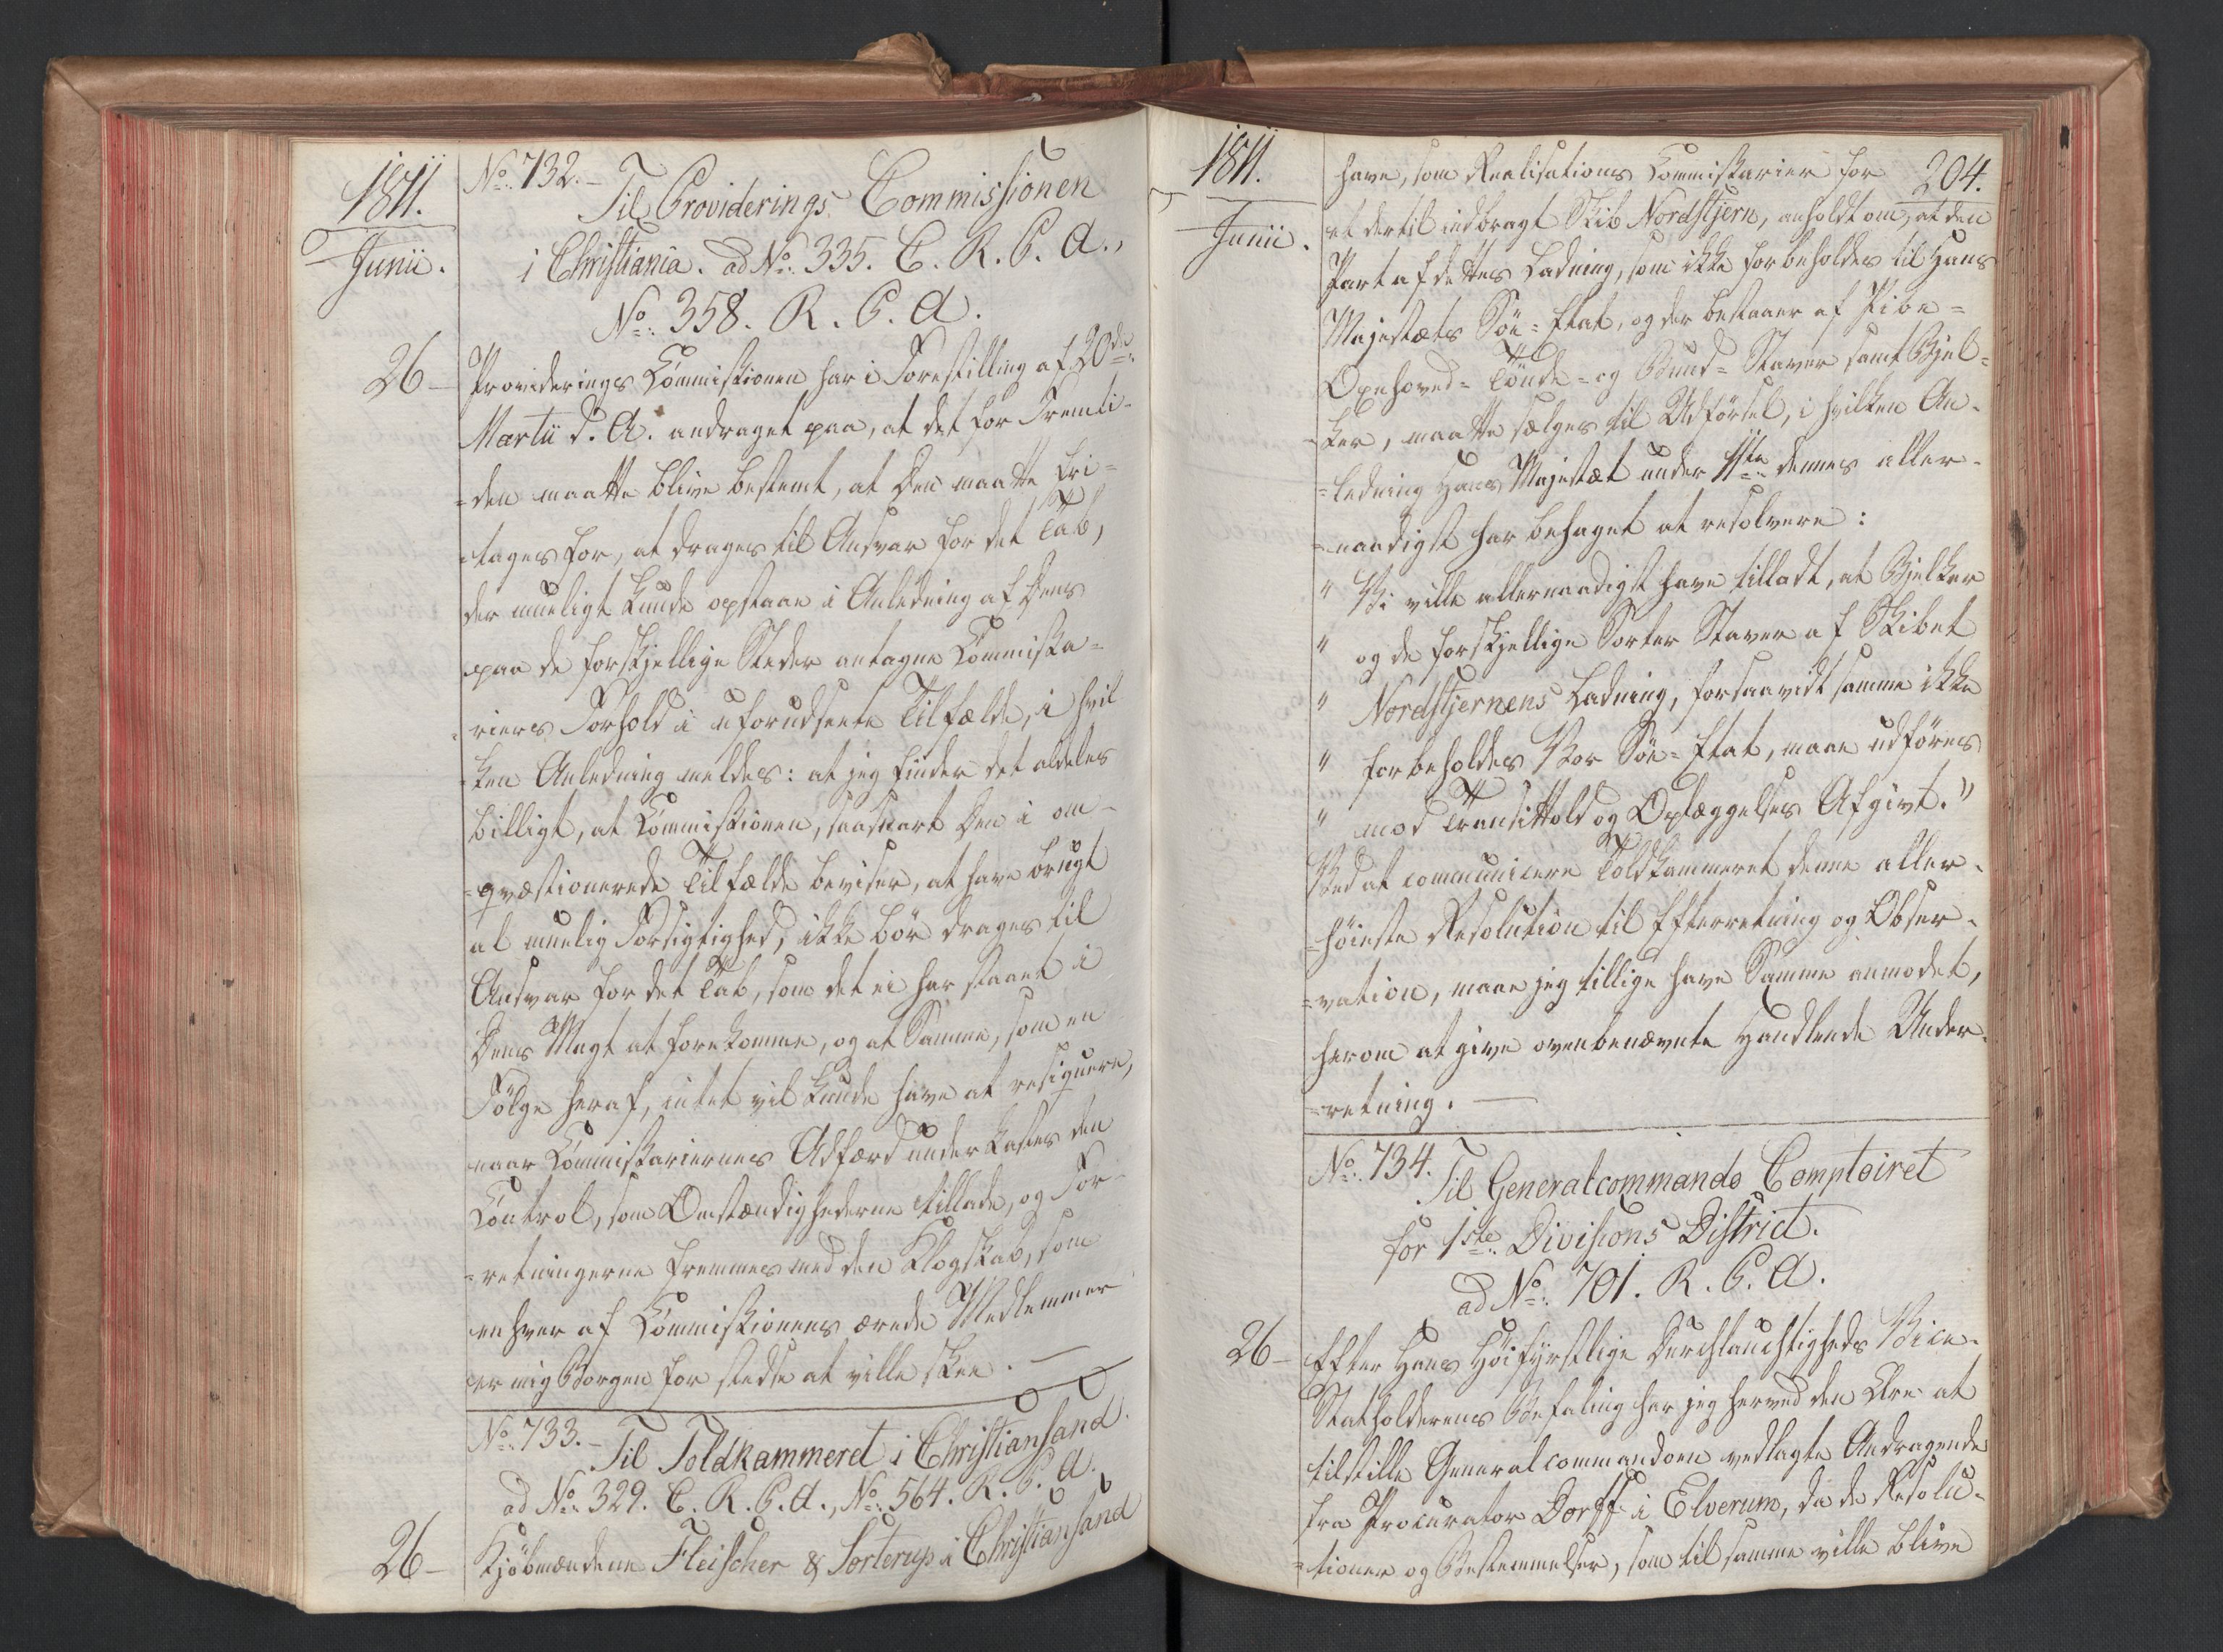 1811.
Junii.
No. 732. –
Til Providerings Commissionen
i Christiania. ad No. 335. C. R. P. A.,
No. 358. R. P. A.
26 –
Providerings Commissionen har i Forestilling af 20de
Martii d. A. andraget paa, at det for Fremti-
=den maatte blive bestemt, at Den maatte fri=
=tages for, at drages til Ansvar for det Tab,
der mueligt kunde opstaae i Anledning af Dens
paa de forskjellige Steder antagne Commissa=
=riers Forhold i uforudseete Tilfælde, i hvil
=ken Anledning meldes: at jeg finder det aldeles
billigt, at Commissionen, saasnart Den i om-
=qvæstionerede Tilfælde beviser, at have brugt
al muelig Forsigtighed, ikke bör drages til
Ansvar for det Tab, som det ei har staaet i
Dens Magt at forekomme, og at Samme, som en
Fölge heraf, intet vil kunde have at resiquere,
naar Commissariernes Adfærd underkastes den
Control, som Omstændighederne tillade, og For-
=retningerne fremmes med den Klogskab, som
enhver af Commissionens ærede Medlemmer
er mig Borgen for stedse at ville skee. –
No. 733. –
Til Toldkammeret i Christiansand.
ad No. 329. C. R. P. A., No. 564. R. P. A.
26 –
Kjöbmændene Fleischer & Sorterup i Christiansand
1811.
Junii.
204.
have, som Realisations Commissarier for
et dertil indbragt Skib Nordstjern, anholdt om, at den
Part af dettes Ladning, som ikke forbeholdes til Hans
Majestæts Söe=Etat, og der bestaaer af Pibe=
Oxehoved= Tönde= og Bund= Staver samt Bjel=
=ker, maatte sælges til Udförsel, i hvilken An-
=ledning Hans Majestæt under 11te dennes aller-
=naadigst har behaget at resolvere:
" Vi ville allernaadigst have tilladt, at Bjelker
" og de forskjellige Sorter Staver af Skibet
" Nordstjernens Ladning, forsaavidt samme ikke
" forbeholdes Vor Söe=Etat, maae udföres
" mod Transittold og Oplæggelses Afgivt."
Ved at communicere Toldkammeret denne aller-
=höieste Resolution til Efterretning og Obser-
=vation, maae jeg tillige have Samme anmodet,
herom at give ovenbenævnte Handlende Under-
=retning. –
No. 734.
Til Generalcommando Comptoiret
for 1ste Divisions District.
ad No. 701. R. P. A.
26 –
Efter Hans Höifyrstlige Durchlauchtigheds Vice-
Statholderens Befaling har jeg herved den Ære at
tilstille Generalcommandoen vedlagte Andragende
fra Procurator Dorff i Elverum, da de Resolu-
=tioner og Bestemmelser, som til samme ville blive